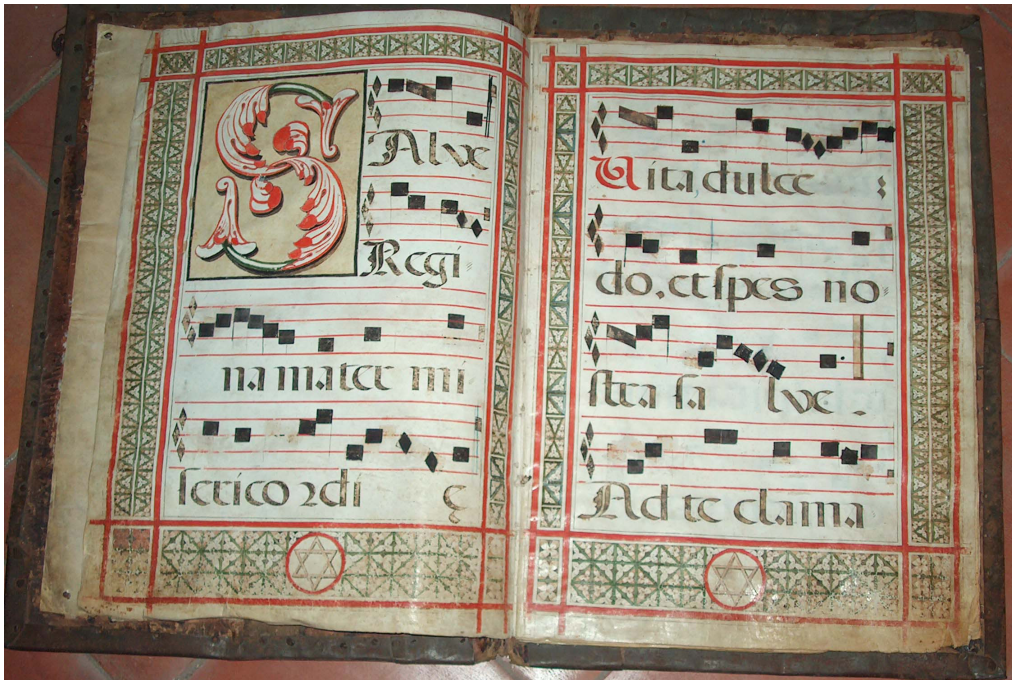 SAlve
Regi
na mater mi
ſericoꝛdi ę
Vita, dulce
do, et ſpes no
ſtra ſa lve .
Ad te clama